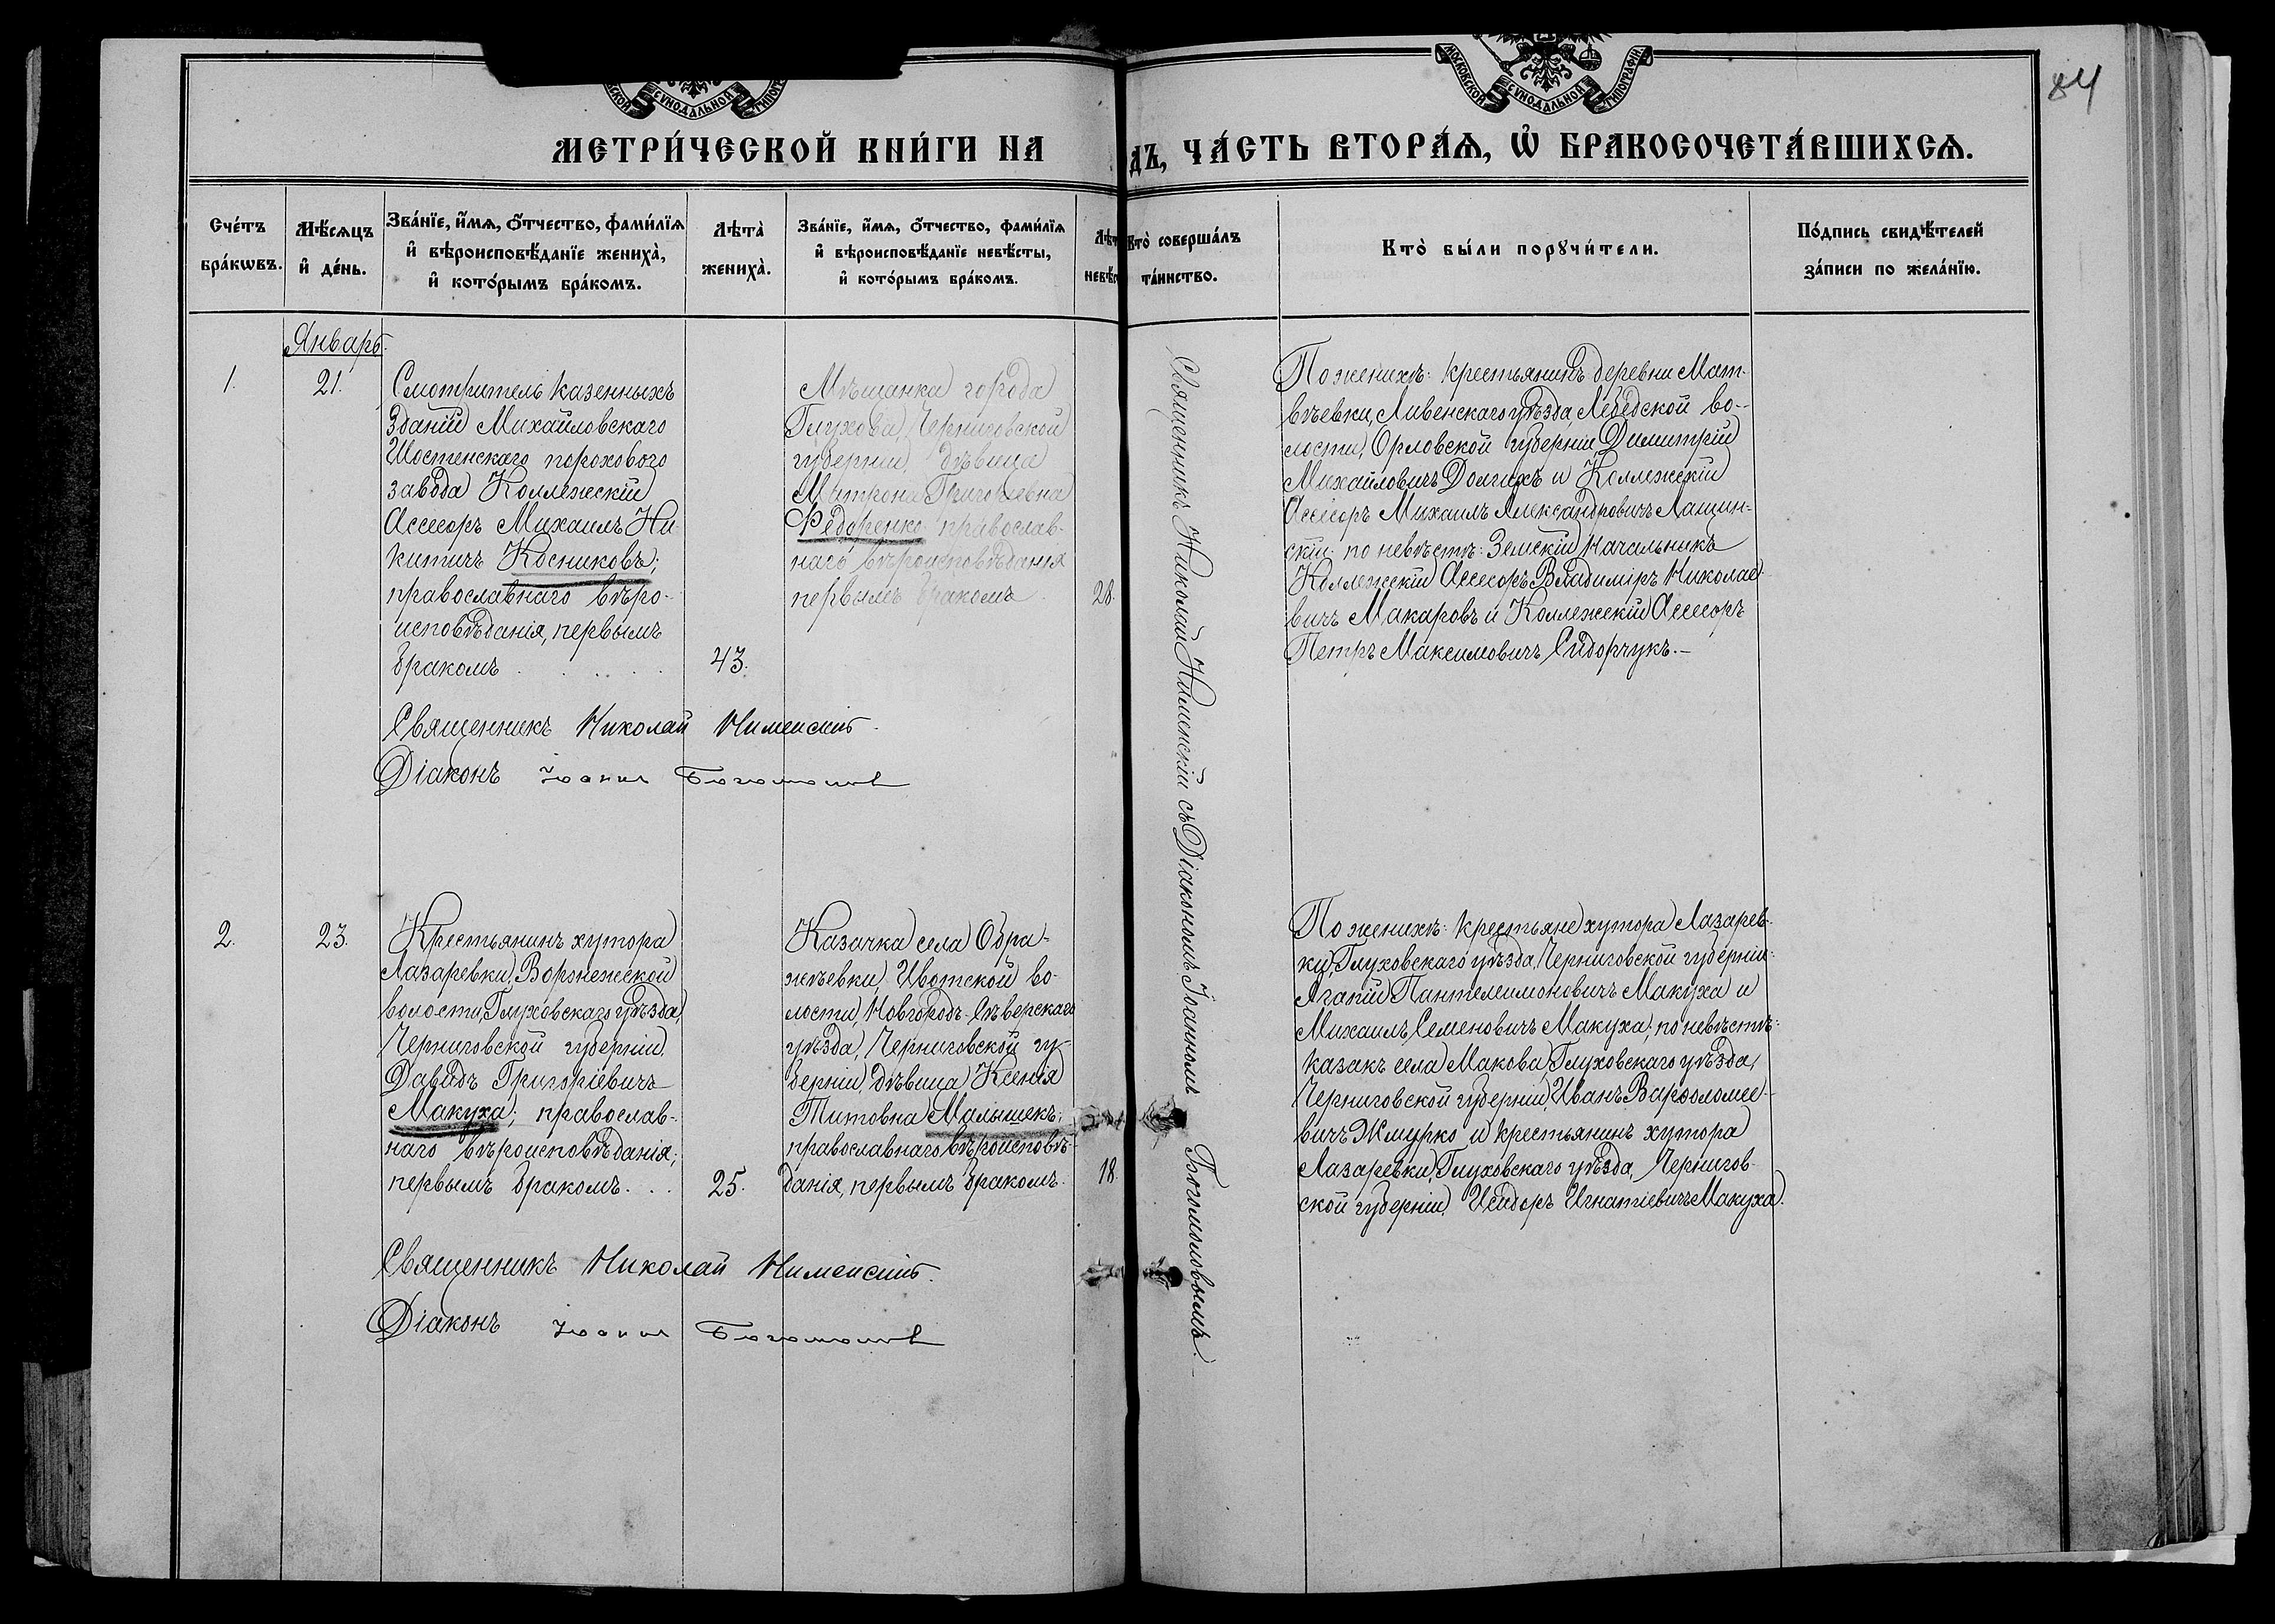 84
МОСКОВСКОЙ СУНОДАЛЬНОЙ ТИПОГРАФІИ.
МЕТРИ́ЧЕСКОЙ КНИ́ГИ НА
ДЪ, ЧА́СТЬ ВТОРА́Ѧ, Ѽ БРАКОСОЧЕТА́ВШИХСѦ.
Сче́тъ бра́кѡвъ.
Мѣ́сѧцъ и҆ де́нь.
Зва́нїе, и҆́мѧ, о҆́тчество, фами́лїѧ
и҆ вѣроисповѣ́данїе жениха̀,
и҆ кото́рымъ бра́комъ.
Лѣта̀ жениха̀.
Зва́нїе, и҆́мѧ, о҆́тчество, фами́лїѧ
и҆ вѣроисповѣ́данїе невѣ́сты,
и҆ кото́рымъ бра́комъ.
Кто̀ соверша́лъ
та́инство.
Кто̀ бы́ли порꙋчи́тели.
По́дпись свидѣ́телей
за́писи по жела́нїю.
Январь.
1.
21.
Смотритель казенныхъ
зданій Михайловскаго
Шостенскаго пороховаго
завода Коллежскій
Ассесоръ Михаилъ Ни-
китичъ Косниковъ;
православнаго вѣро-
исповѣданія, первымъ
бракомъ . . . . .
43.
Мѣщанка города
Глухова, Черниговской
губерніи, дѣвица
Матрона Григорьевна
Федоренко православ-
наго вѣроисповѣданія
первымъ бракомъ
28.
Священникъ Николай Нименскій съ Діакономъ Іоанномъ Богомоловымъ.
По женихѣ: крестьянинъ деревни Мат-
вѣевки, Ливенскаго уѣзда, Лебедской во-
лости, Орловской губерніи, Димитрій
Михайловичъ Долгихъ и Коллежскій
Ассесоръ Михаилъ Александровичъ Лашин-
скій; по невѣстѣ: Земскій Начальникъ
Коллежскій Ассесоръ Владиміръ Николае-
вичъ Макаровъ и Коллежскій Ассесоръ
Петръ Максимовичъ Сидорчукъ.—
Священникъ Николай Нименскій.
Діаконъ Іоаннъ Богомоловъ
2.
23.
Крестьянинъ хутора
Лазаревки, Воронежской
волости, Глуховскаго уѣзда,
Черниговской губерніи,
Давидъ Григоріевичъ
Макуха; православ-
наго вѣроисповѣданія;
первымъ бракомъ. . .
25.
Казачка села Обра-
жѣевки, Ивотской во-
лости, Новгородъ-Сѣверскаго
уѣзда, Черниговской гу-
берніи, дѣвица Ксенія
Титовна Малышекъ;
православнаго вѣроисповѣ-
данія, первымъ бракомъ.
18.
По женихѣ: крестьяне хутора Лазарев-
ки, Глуховскаго уѣзда, Черниговской губерніи:
Агапій Пантелеимоновичъ Макуха и
Михаилъ Семеновичъ Макуха; по невѣстѣ:
казакъ села Макова, Глуховскаго уѣзда,
Черниговской губерніи, Иванъ Варѳоломее-
вичъ Жмурко и крестьянинъ хутора
Лазаревки, Глуховскаго уѣзда, Чернигов-
ской губерніи, Исидоръ Игнатіевичъ Макуха.
Священникъ Николай Нименскій.
Діаконъ Іоаннъ Богомоловъ